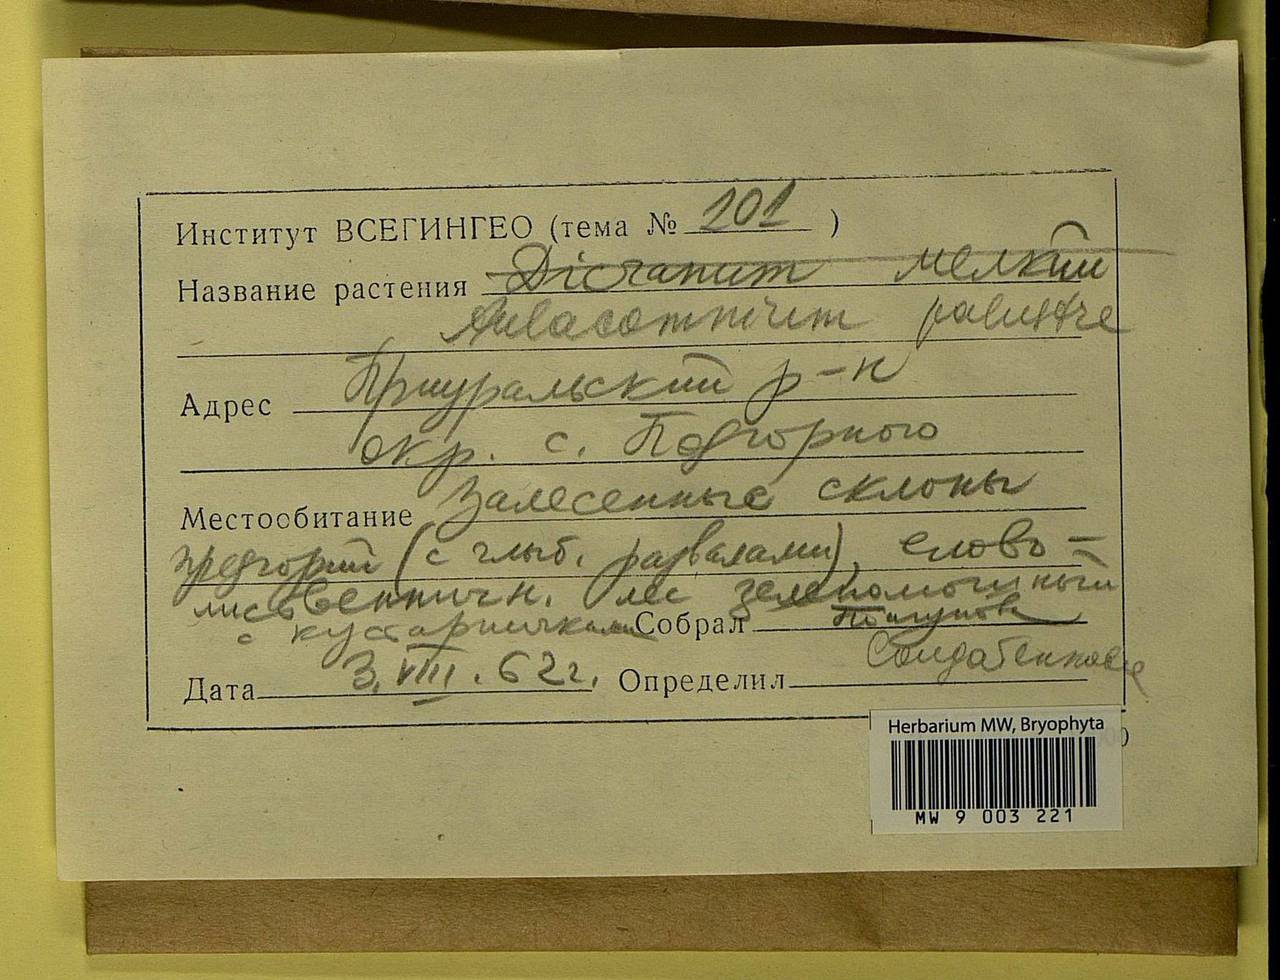 Институт ВСЕГИНГЕО (тема № 101 )
Название растения Dicranum мелкий
Aulacomnium palustre
Адрес Приуральский р-н
окр. с. Подгорного
Местообитание Залесенные склоны
предгорий (с глыб. развалами), елово-
лиственничн. лес зеленомошный
с кустарничками Собрал
Дата 3.VIII.62г. Определил
Herbarium MW, Bryophyta
MW 9 003 221